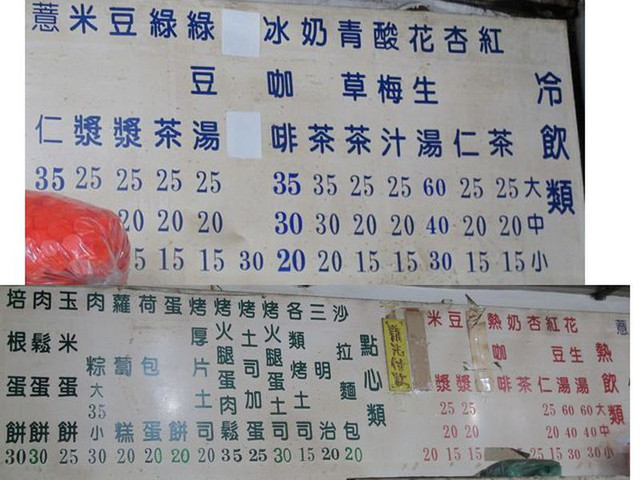 冷飲類
大 中 小
紅茶 25 20 15
杏仁 25 20 15
花生湯 60 40 30
酸梅汁 25 20 15
青草茶 25 20 15
奶茶 35 30 20
冰咖啡 35 30 20
30
綠豆湯 25 20 15
綠茶 25 20 15
豆漿 25 20
米漿 25
薏仁 35
點心類
沙拉麵包 20
三明治 20
各類烤土司 15
烤火腿蛋土司 30
烤土司加蛋 25
烤火腿蛋肉鬆 35
烤厚片土司 20
蛋餅 20
荷包蛋 20
蘿蔔糕 20
肉粽 大35 小30
玉米蛋餅 25
肉鬆蛋餅 30
培根蛋餅 30
薏
熱飲類
大 中 小
花生湯 60 40
紅豆湯 60 40
杏仁 25 20
奶茶
熱咖啡
豆漿 25 20 15
米漿 25 20 15
20